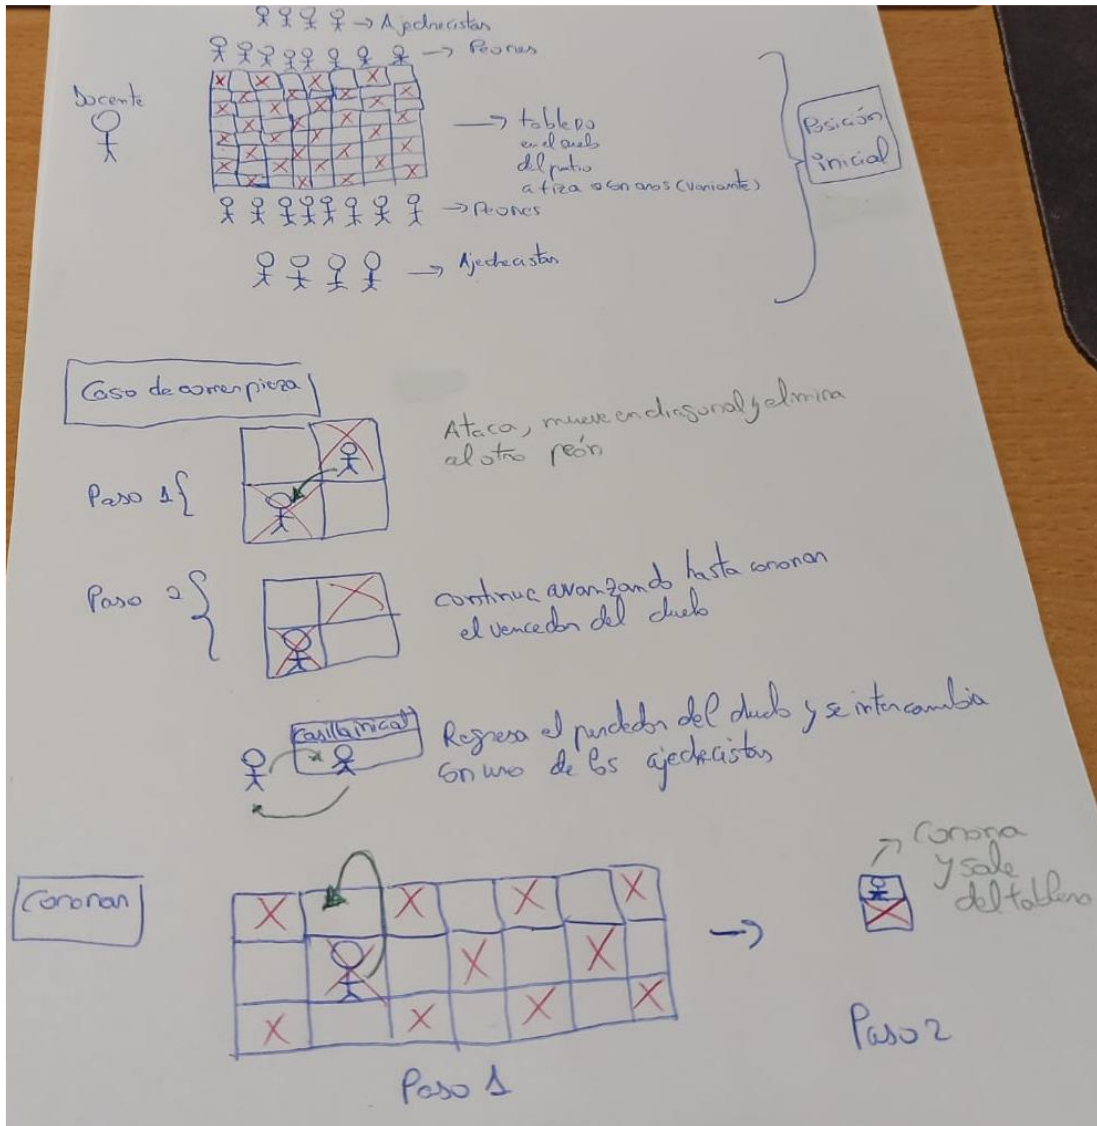 Ajedrecistas
Peones
Docente
tablero
en el suelo
del patio
a tiza o con aros (variante)
Posición
inicial
Peones
Ajedrecistas
Caso de comer pieza
Ataca, mueve en diagonal y elimina
al otro peón
Paso 1
Paso 2
continua avanzando hasta coronar
el vencedor del duelo
Casilla inicial
Regresa el perdedor del duelo y se intercambia
con uno de los ajedrecistas
Coronar
Corona
y sale
del tablero
Paso 1
Paso 2